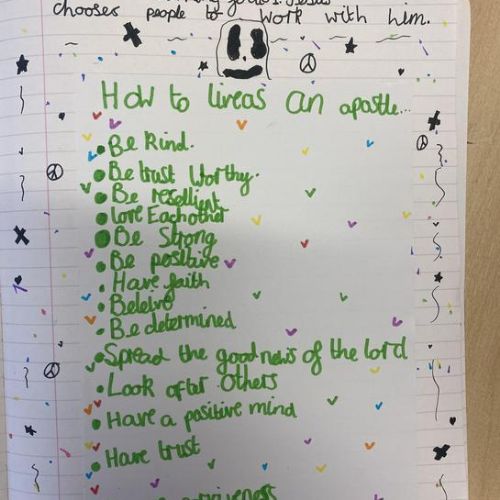 chooses people to work with him.
How to live as an apostle...
Be Kind.
Be trust Worthy.
Be resellient
Love Eachother
Be Strong
Be positive
Have faith
Beleive
Be determined
Spread the good news of the lord
Look after others
Have a positive mind
Have trust